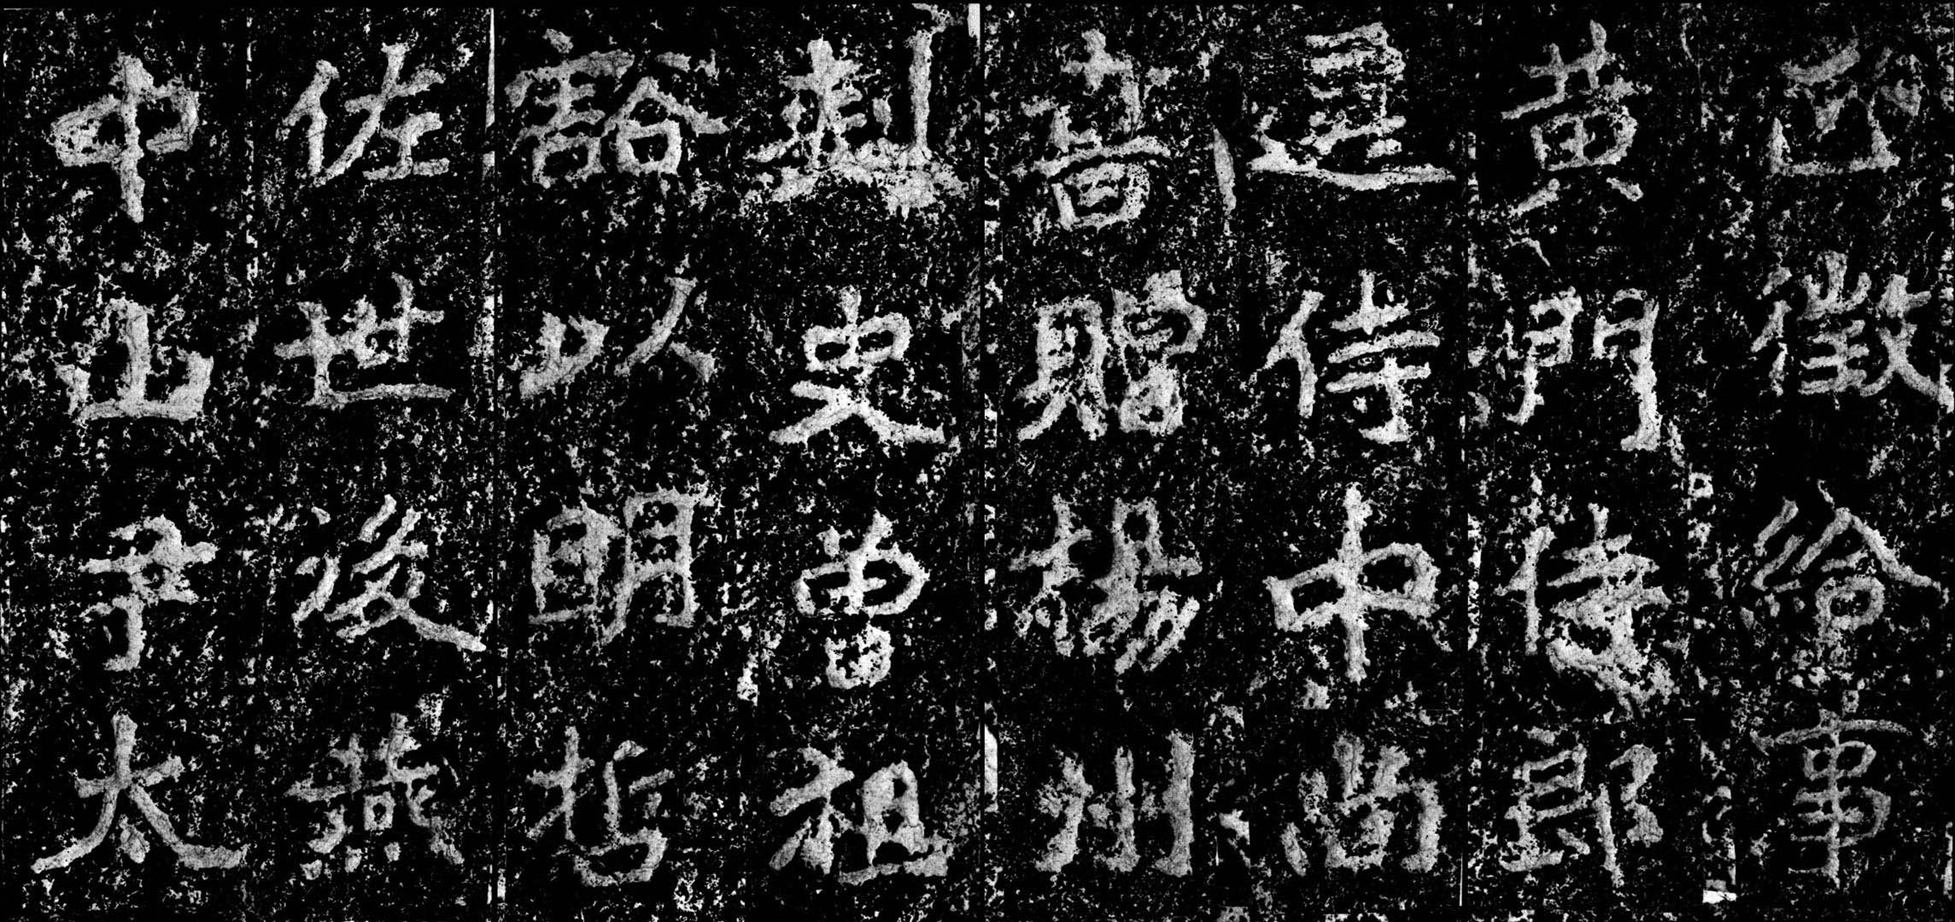 正徵給事
黃門侍郎
遷侍中尚
書贈楊州
刺史曾祖
豁以明哲
佐世後燕
中山尹太